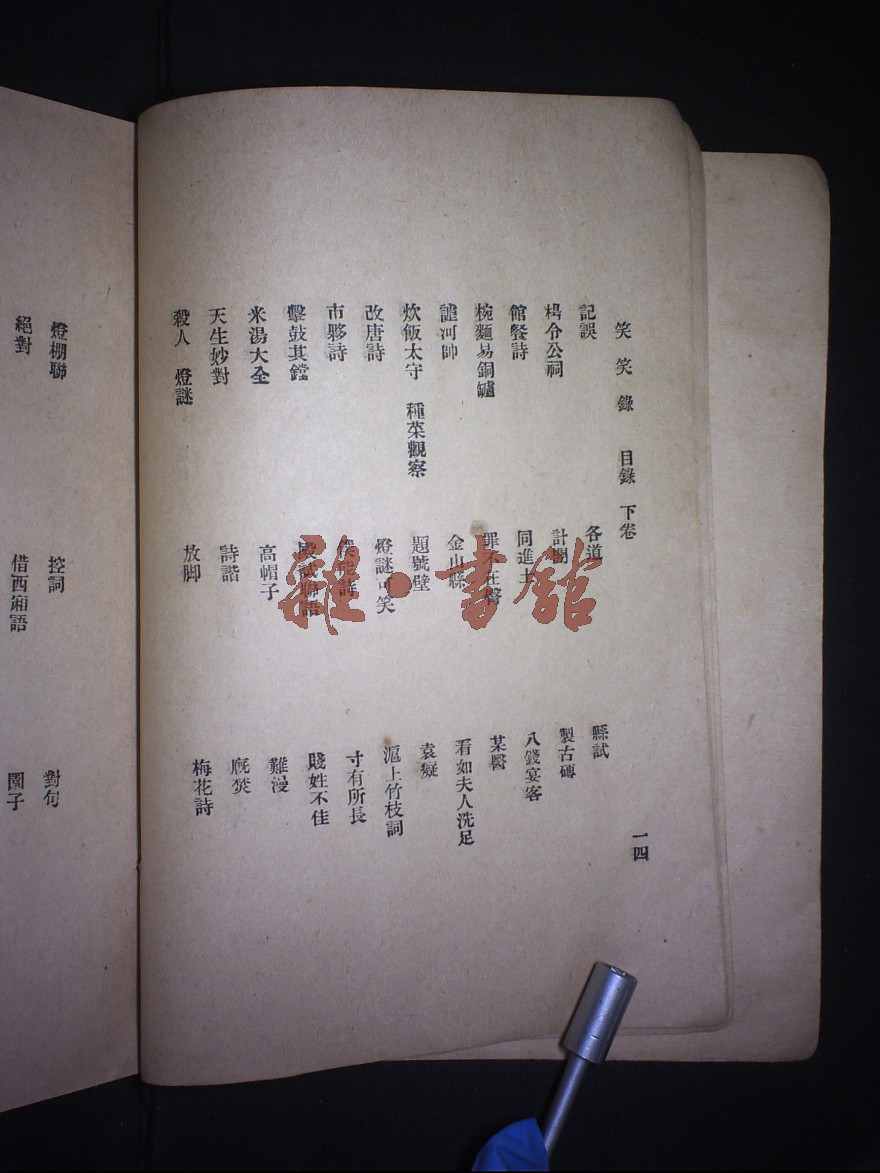 笑笑錄 目錄 下卷 一四
記誤 各道 縣試
楊令公祠 計開 製古磚
館餐詩 同進士 八錢宴客
椀麵易銅罏 罪不在醫 某醫
謔河帥 金山縣 看如夫人洗足
炊飯太守 種菜觀察 題號壁 袁癡
改唐詩 燈謎可笑 滬上竹枝詞
市夥詩 詩 寸有所長
擊鼓其鏜 殿試聯語 賤姓不佳
米湯大全 高帽子 難漫
天生妙對 詩諧 廐焚
殺人 燈謎 放脚 梅花詩
燈棚聯 控詞 對句
絕對 借西廂語 子
雜·書館